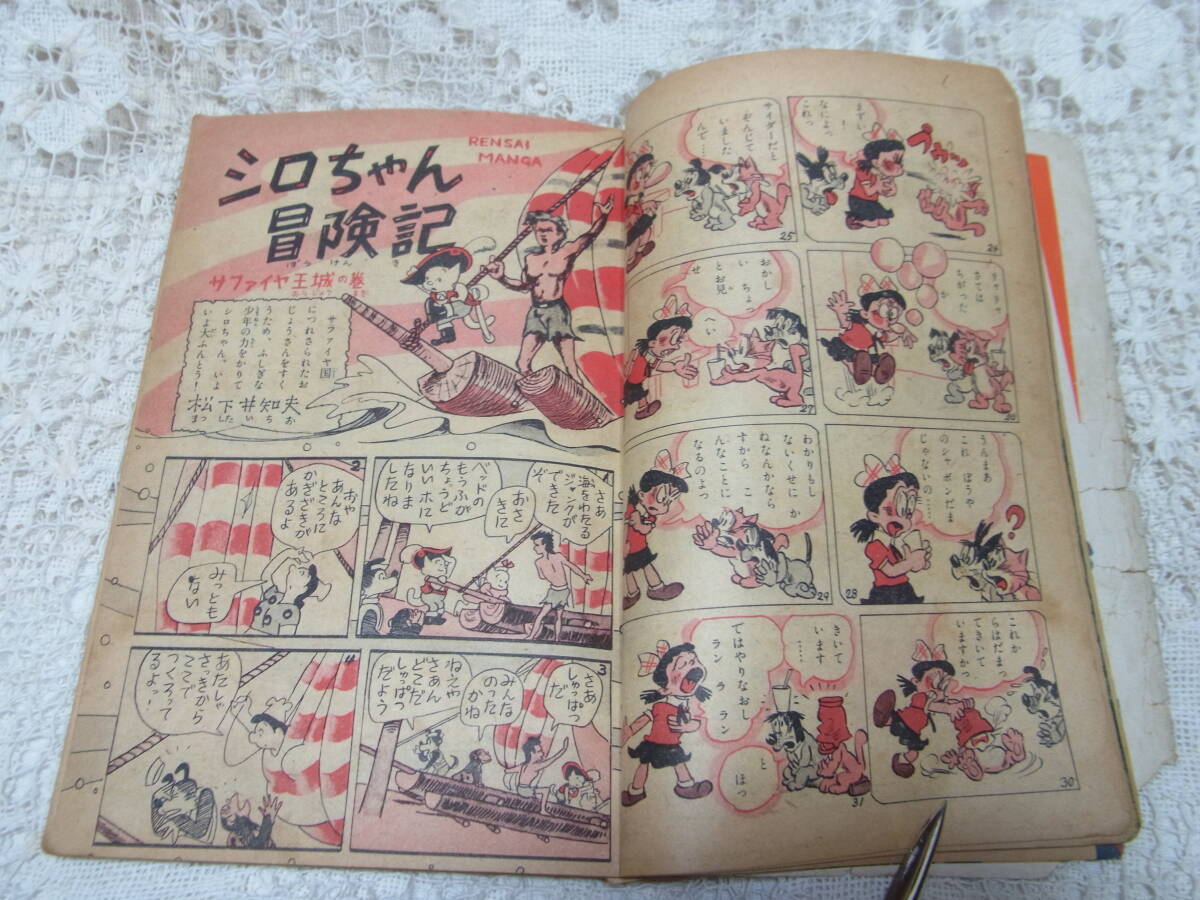 サイダーだと
ぞんじて
いました
んで…
25
まてい
!
なによっ
これっ
プギーッ
24
おかし
い ちょ
とお見
せ
へい
27
さては
ちがった
か
わかりもし
ないくせにか
ねなんかなら
すから こ
んなことに
なるのよっ
29
うんまあ
これ ぼうや
のシャボンだま
じゃないの……
?
28
きいて
います
……
ではやりなおし
ラン ラ ラン
と
ほっ
31
これか
らはだまっ
てきいて
いますかっ
30
RENSAI
MANGA
シロちゃん
冒険記
ぼうけんき
サファイヤ王城の巻
おうじょう まき
サファイヤ国
につれさられたお
じょうさんをすく
うため、ふしぎな
少年の力をかりて
シロちゃん、いよ
いよ大ふんとう!
松下井知夫
まつ した い ち お
さあ
海をわたる
ジャンクが
できた
ぞ
おさ
きに
ベッドの
もうふが
ちょうど
いいホに
なりま
したね
2
おや
あんな
ところに
かぎざきが
あるよ
みっとも
ない
3
さあ
しゅっぱつ
だ
みんな
のった
かね
ねえや
さあん
どこだ
しゅっぱつ
だよう
4
あたしゃ
さっきから
ここで
つくろって
るよ!